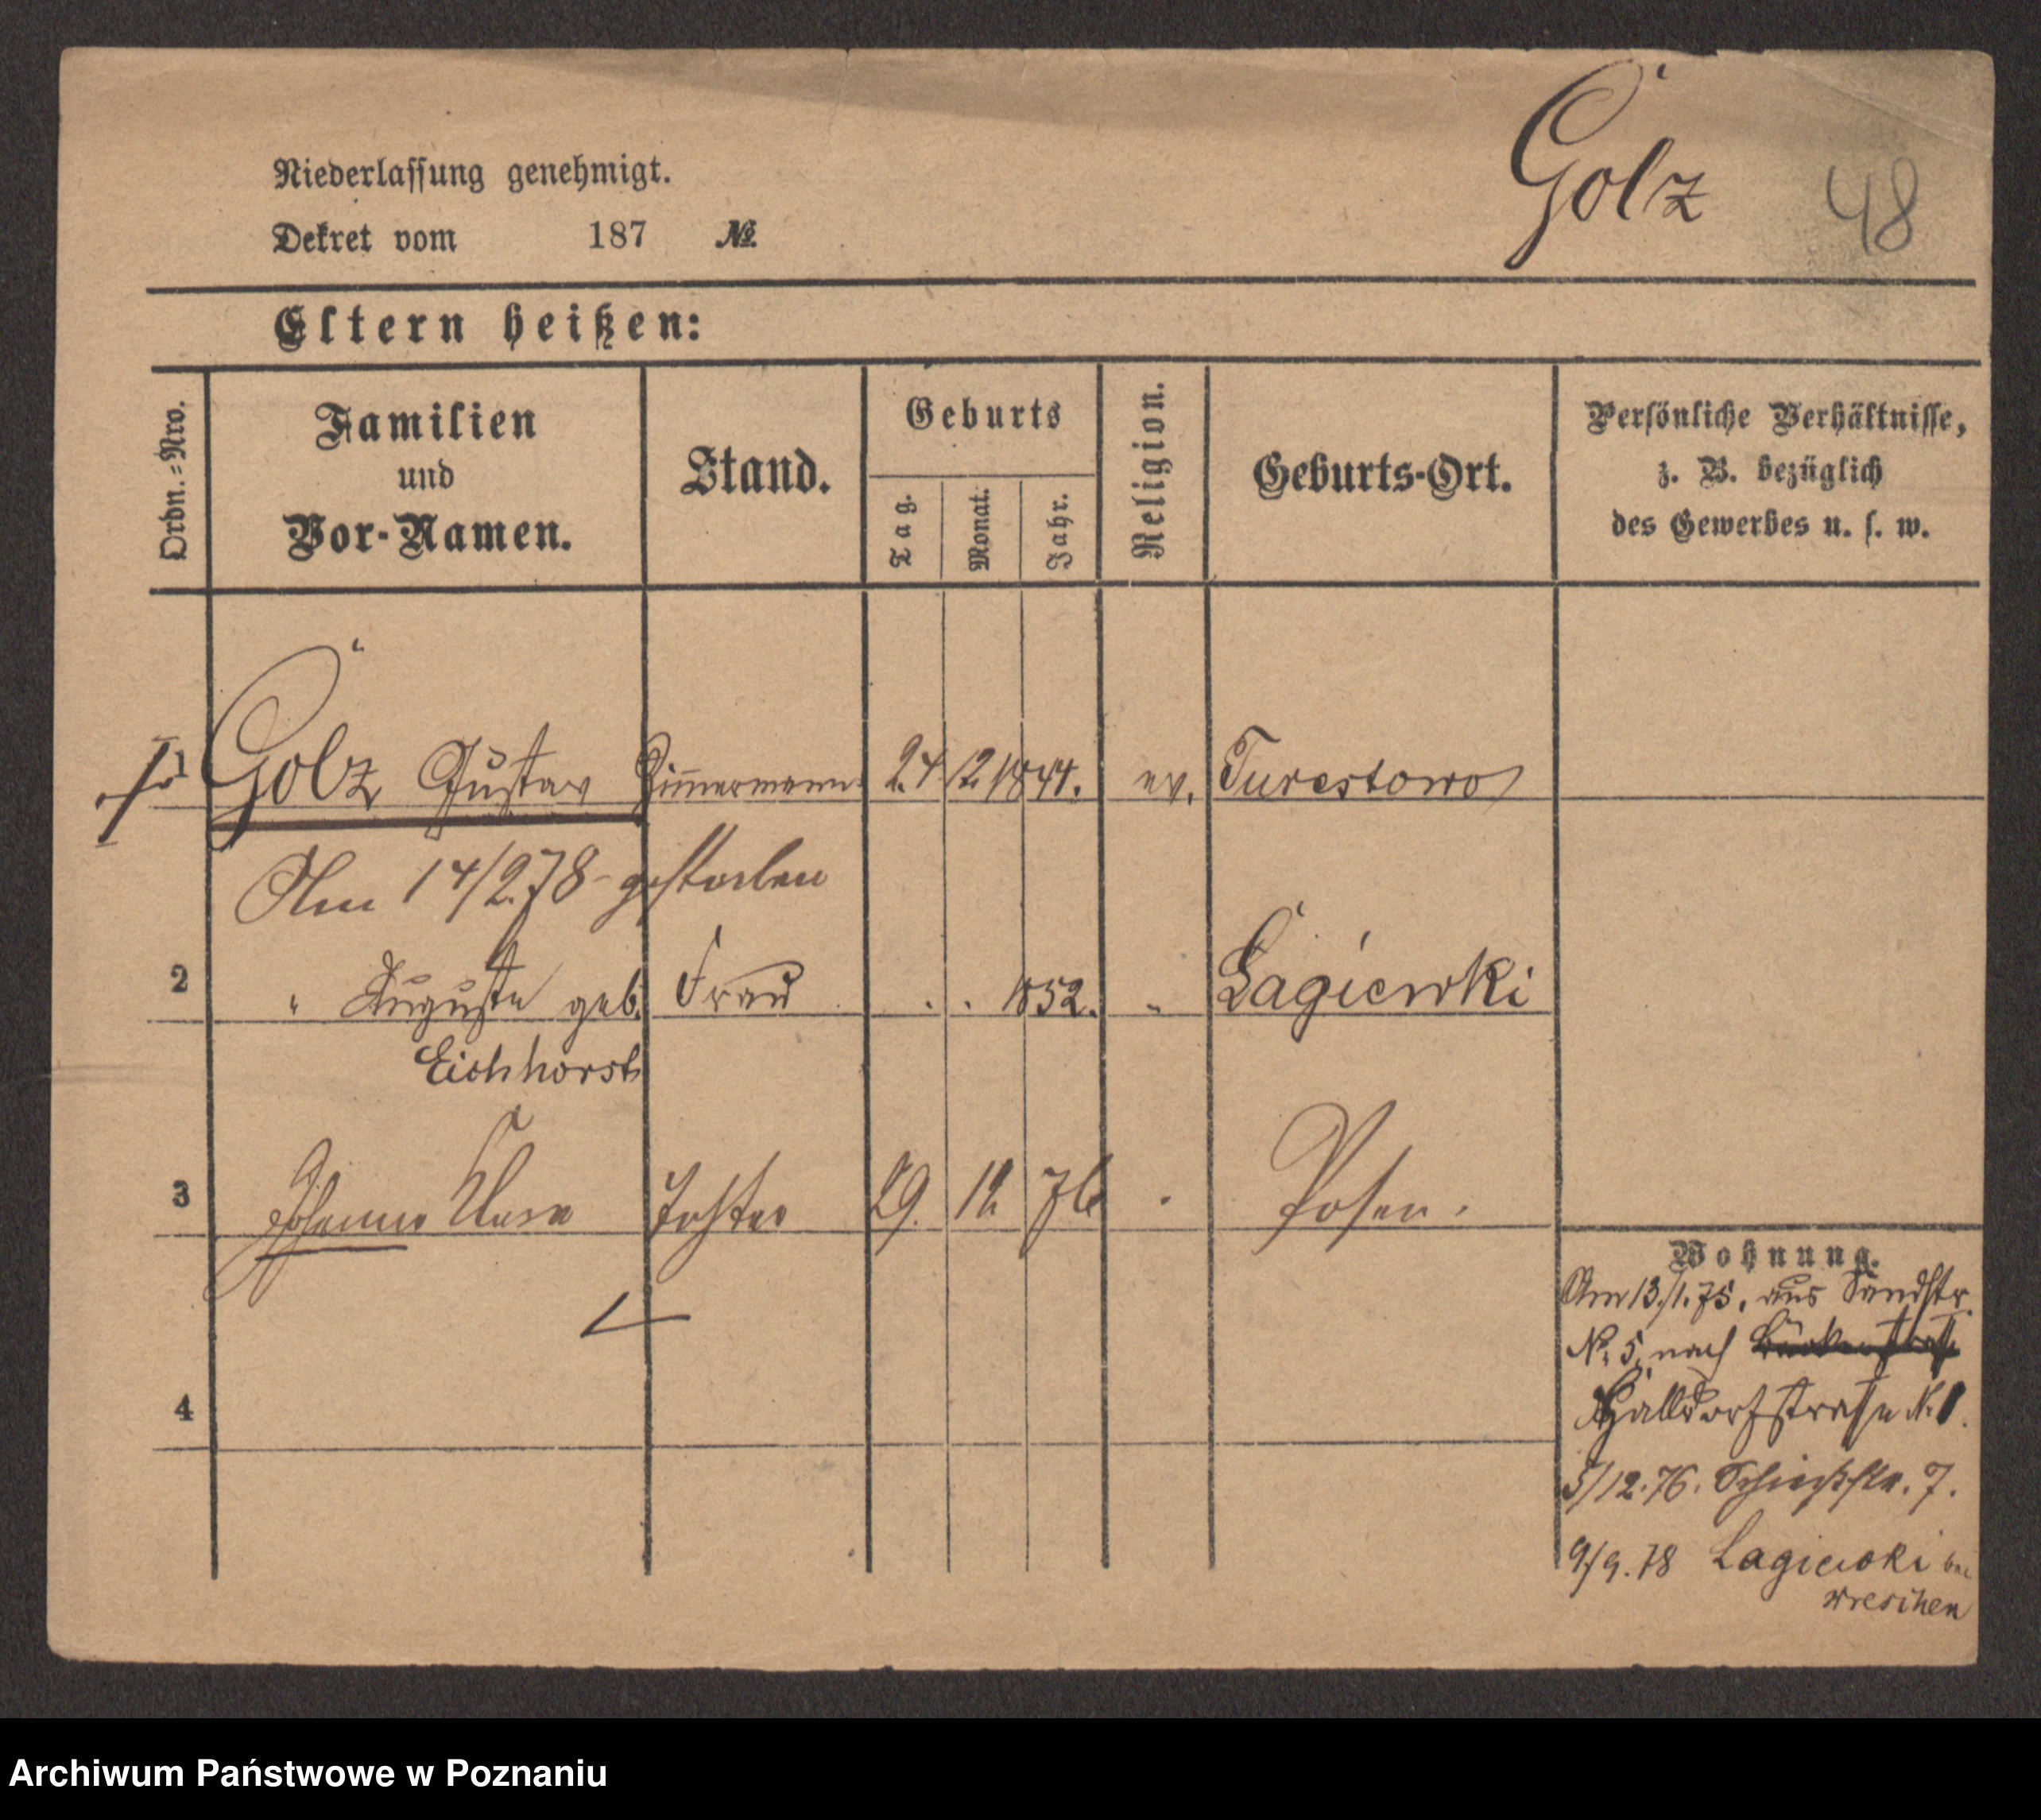 Golz 48
Niederlassung genehmigt.
Dekret vom 187 No.
Eltern heißen:
Ordn.=Nro.
Familien
und
Vor-Namen.
Stand.
Geburts
Tag.
Monat.
Jahr.
Religion.
Geburts-Ort.
Persönliche Verhältnisse,
z. B. bezüglich
des Gewerbes u. s. w.
1 Golz Gustav Zimmermann 24 12 1844. ev. Turostowo
Am 14/2.78 gestorben
2 " Auguste geb. Frau . . 1852. " Lagiewki
Eichhorst
3 Johanna Tochter 29. 12 76 " Posen.
4
Wohnung.
Am 13./1.75. aus Sandstr.
No. 5. nach
Halldorfstraße No. 1.
5/12.76. Schießstr. 7.
9/9.78 Lagiewki bei
Wreschen
Archiwum Państwowe w Poznaniu